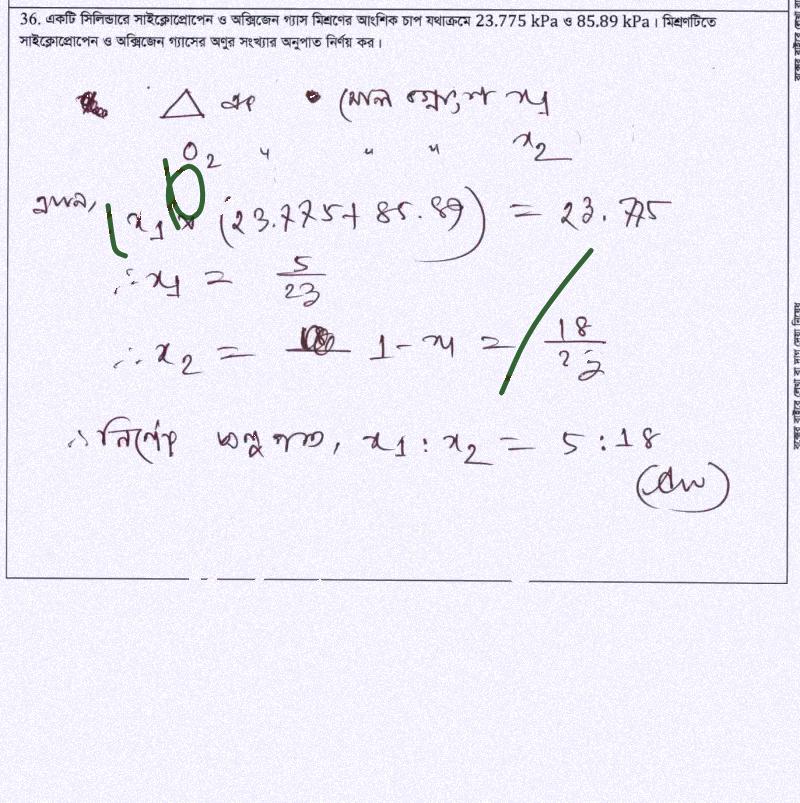 36. একটি সিলিন্ডারে সাইক্লোপ্রোপেন ও অক্সিজেন গ্যাস মিশ্রণের আংশিক চাপ যথাক্রমে 23.775 kPa ও 85.89 kPa। মিশ্রণটিতে
সাইক্লোপ্রোপেন ও অক্সিজেন গ্যাসের অণুর সংখ্যার অনুপাত নির্ণয় কর।
△ এর মোল ভগ্নাংশ x₁
O₂ " " " x₂
এখন, x₁ × (23.775 + 85.89) = 23.775
∴ x₁ = 5/23
∴ x₂ = 1 - x₁ = 18/23
∴ নির্ণেয় অনুপাত, x₁ : x₂ = 5 : 18
(Ans)